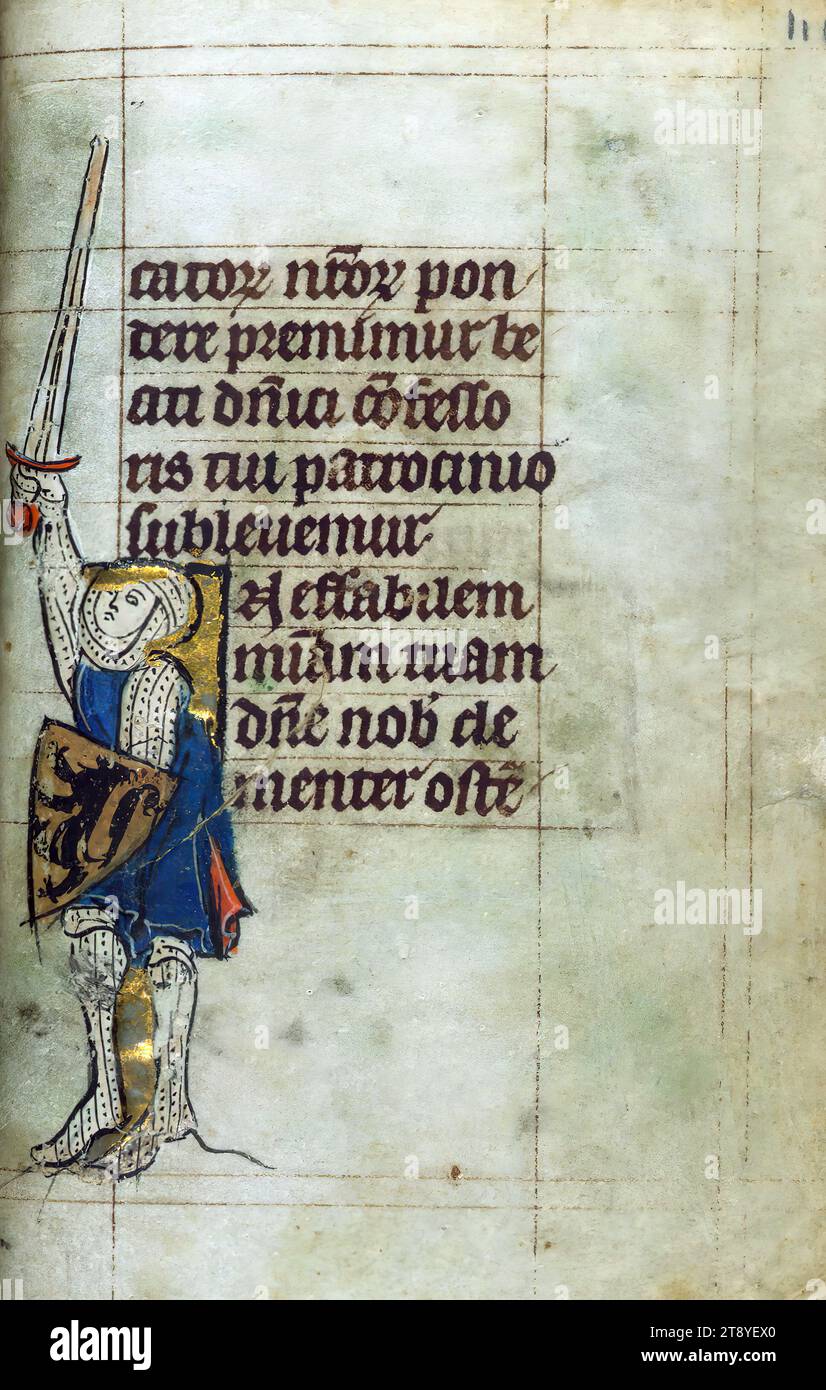 catoꝝ nr̄oꝝ pon
dere premimur be
ati dn̄ici cōfesso
ris tui patrocinio
subleuemur·
effabilem
mīam tuam
dn̄e nob' cle
menter ostē
alamy
alamy
alamy
Image ID: 2T8YEX0
www.alamy.com